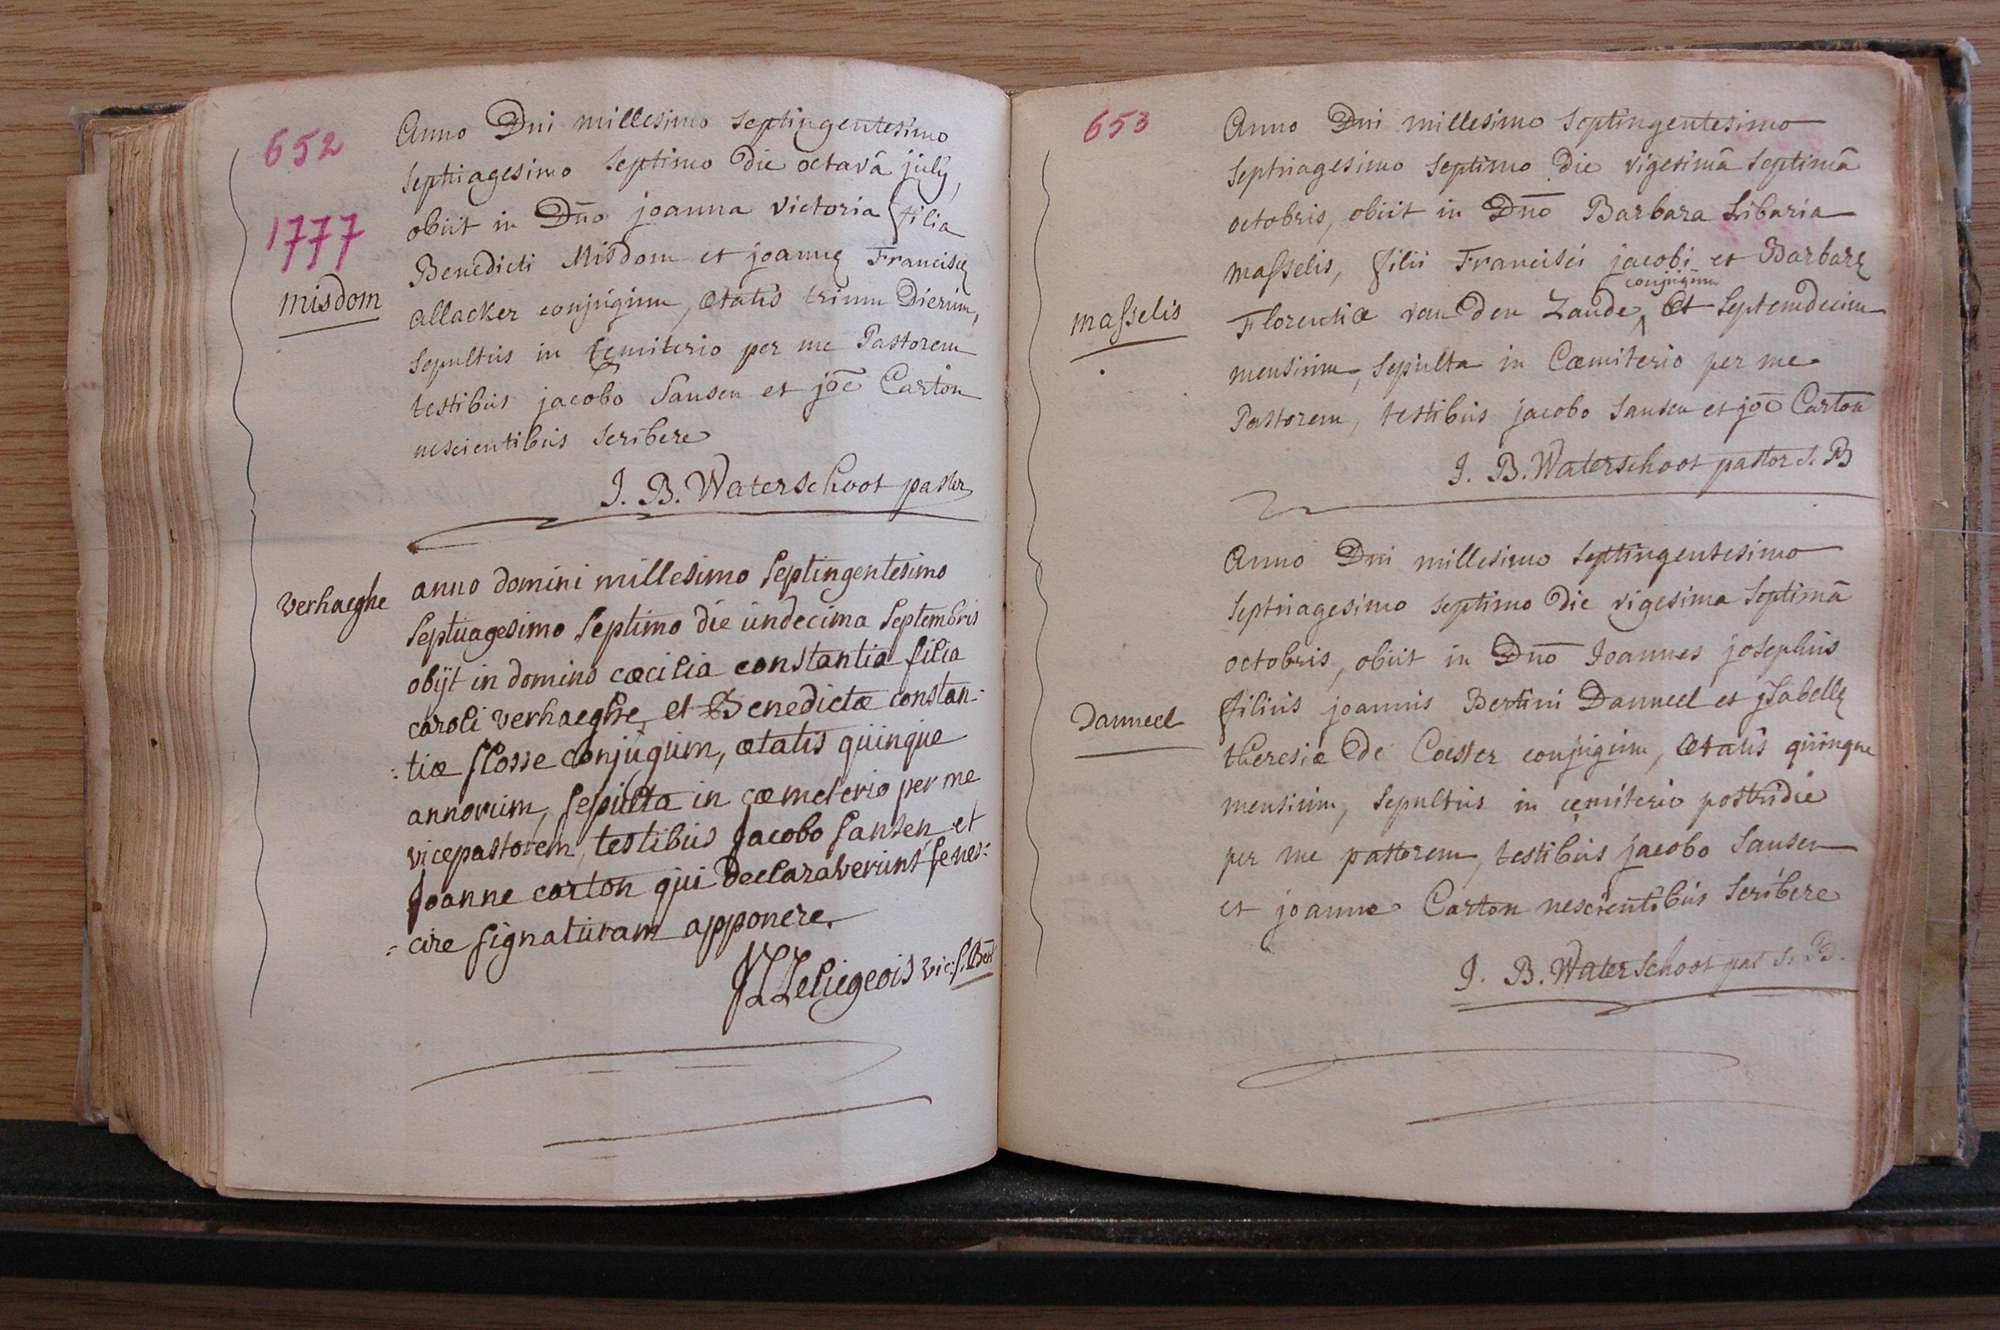 652
1777
misdom
Anno Dni millesimo septingentesimo
septuagesimo septimo die octavâ july,
obiit in Dno joanna victoria filia
Benedicti Misdom et joannę Franciscę
allacker conjugum, ætatis trium dierum,
sepultus in cęmiterio per me Pastorem
testibus jacobo Sansen et joe Carton
nescientibus scribere
J. B. Waterschoot pastor
verhaeghe
anno domini millesimo septingentesimo
septuagesimo septimo die undecima septembris
obijt in domino cæcilia constantia filia
caroli verhaeghe, et Benedictæ constan-
:tiæ flosse conjugum, ætatis quinque
annorum, sepulta in cæmeterio per me
vicepastorem, testibus Jacobo sansen et
Joanne carton qui declaraverunt se nes:
:cire signaturam apponere.
Leliegeois vic: s. Bert
653
masselis
Anno Dni millesimo septingentesimo
septuagesimo septimo die vigesimâ septimâ
octobris, obiit in Dno Barbara Libaria
masselis, filii Francisci jacobi et Barbarę
conjugum
Florentiæ van den Zande, æt septemdecim
mensium, sepulta in Cœmiterio per me
Pastorem, testibus jacobo Sansen et joe Carton
J. B. Waterschoot pastor s. B
Danneel
Anno Dni millesimo septingentesimo
septuagesimo septimo die vigesima septimâ
octobris, obiit in Dno Joannes josephus
filius joannis Bertini Danneel et jsabellę
theresiæ De Coester conjugum, ætatis quinque
mensium, sepultus in cęmiterio postridie
per me pastorem, testibus jacobo Sansen
et joanne Carton nescientibus scribere
J. B. Waterschoot pas s. B.